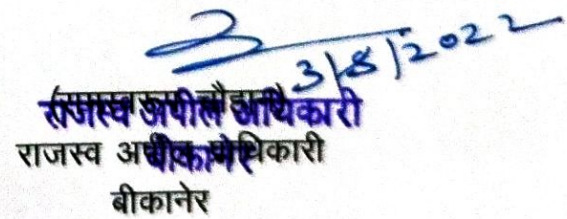 3/8/2022
राजस्व अपील अधिकारी
राजस्व अपील अधिकारी
बीकानेर
बीकानेर